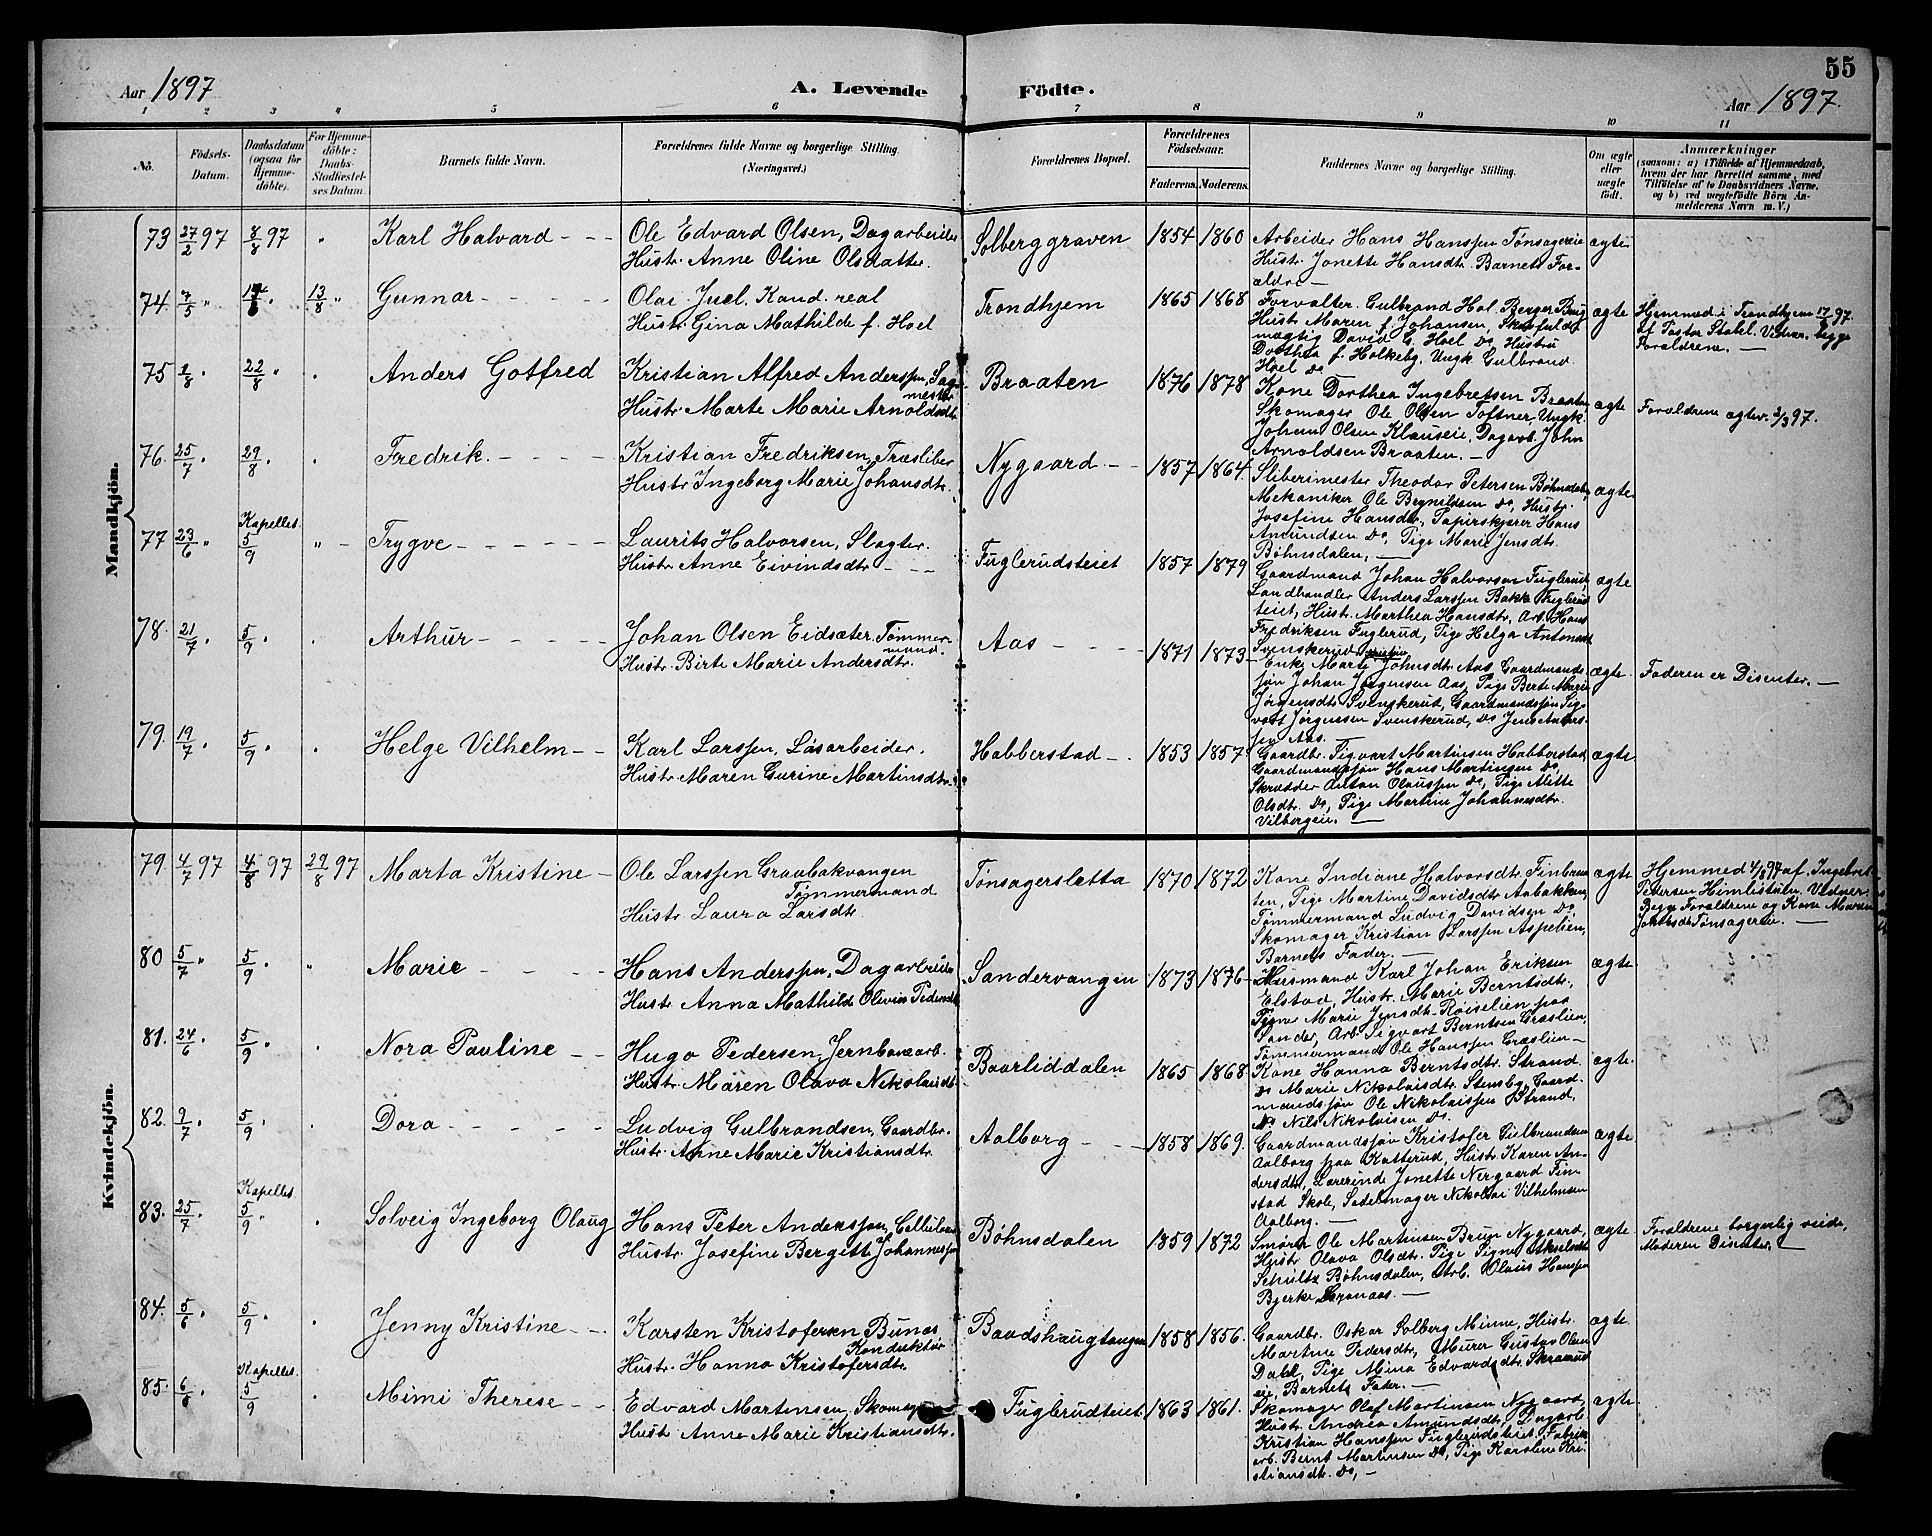 55
Aar 1897
A. Levende Födte.
Aar 1897.
1 2 3 4 5 6 7 8 9 10 11
No.
Födsels-Datum.
Daabsdatum (ogsaa for Hjemmedöbte).
For Hjemmedöbte: Daabs-Stadfestelses Datum.
Barnets fulde Navn.
Forældrenes fulde Navne og borgerlige Stilling. (Næringsvei.)
Forældrenes Bopæl.
Forældrenes Födselsaar.
Faderens. Moderens.
Faddernes Navne og borgerlige Stilling.
Om ægte eller uægte födt.
Anmærkninger
(saasom: a) i Tilfælde af Hjemmedaab, hvem der har forrettet samme, med Tilföielse af to Daabsvidners Navne, og b) ved uægtefödte Börn Anmelderens Navn m. V.)
Mandkjön.
73 27/2 97 8/8 97 Karl Halvard
Ole Edvard Olsen, Dagarbeider
Hustr. Anne Oline Olsdatter.
Solberggraven 1854 1860
Arbeider Hans Hanssen Tønsagereie
Hustr. Jonette Hansdtr. Barnets For-
ældre
ægte
74. 7/5 " 13/8 " Gunnar
Olai Juel, Kand. real
Hustr. Gina Mathilde f. Hoel
Trondhjem 1865 1868
Forvalter Gulbrand Hol. Berger Brug
Hustr. Maren f. Johansen,
mægtig David G. Hoel Do Hustru
Dorthea f. Holkeby, Ungk. Gulbrand
Hoel Do
ægte
Hjemmed. i Trondhjem
af Pastor Stabel. Vidner: begge
Forældrene.
75 1/8 22/8 " Anders Gotfred
Kristian Alfred Anderssen, Sag-
mester
Hustr. Marte Marie Arnoldsdtr
Braaten 1876 1878
Kone Dorthea Ingebretsen Braaten
Skomager Ole Olsen Toftner, Ungk.
Johan Olsen Klauseie, Dagarb. John
Arnoldsen Braaten.
ægte
Forældrene ægtev. 3/3 97.
76. 25/7 29/8 Fredrik.
Kristian Fredriksen, Træsliber
Hustr Ingeborg Marie Johansdtr.
Nygaard 1857 1864.
Sliberimester Theodor Petersen Bøhnsdalen,
Mekaniker Ole Brynildsen Do, Hustr.
Josefine Hansdtr, Papirskjærer Hans
Amundsen Do, Pige Marie Jensdtr.
Bøhnsdalen.
ægte
77 23/6 " Kapellet. 5/9 Trygve
Laurits Halvorsen, Slagter.
Hustr Anne Eivindsdtr
Fuglerudsteiet 1857 1879
Gaardmand Johan Halvorsen Fuglerud,
Landhandler Anders Larssen Bakke Fuglerud
teiet, Hustr. Marthea Hansdtr, Arb. Hans
Fredriksen Fuglerud, Pige Helga Antonsdtr
Svenskerud
ægte
78. 21/7 5/9 Arthur
Johan Olsen Eidsæter. Tømmer-
mand.
Hustr. Birte Marie Andersdtr.
Aas 1871 1873
Enke Marte Johnsdtr Aas, Gaardmands-
søn Johan Jørgensen Aas, Pige Berte Marie
Jørgensdtr Svenskerud, Gaardmandssøn Sig-
vart Jørgenssen Svenskerud, Do Jens Anders-
sen Aas.
ægte
Faderen er Disenter.
79. 19/7 5/9 Helge Vilhelm
Karl Larssen, Løsarbeider.
Hustr Maren Gurine Martinsdtr.
Habberstad 1853 1857
Gaardbr. Sigvart Martinsen Habberstad,
Gaardmandssøn Hans Martinsen Do,
Skrædder Anton Olaussen Do, Pige Mette
Olsdtr. Do, Pige Martine Johannesdtr.
Vilbergeie.
ægte
Kvindekjön.
79. 4/7 97 4/8 97 29/8 97 Marta Kristine
Ole Larssen Graabakvangen
Tømmermand
Hustr. Laura Larsdtr.
Tønsagersletta 1870 1872
Kone Indiane Halvorsdtr. Finbraa-
ten, Pige Martine Davidsdtr Aabakken,
Tømmermand Ludvig Davidsen Do
Skomager Kristian Larssen Aspelien,
Barnets Fader.
ægte
Hjemmed 4/8 97 af Ingebret
Petersen Himlistuen. Vidner:
Begge Forældrene og Kone Maren
Tønsagereie.
80 5/7 " 5/9 " Marie
Hans Anderssen, Dagarbeider
Hustr. Anna Mathilde Olevine Pedersdtr
Sandervangen 1873 1876
Husmand Karl Johan Eriksen
Elstad, Hustr. Marie Berntsdtr.,
Pige Marie Jensdtr. Røiselien paa
Sander, Arb. Sigvart Berntsen Græslien,
Tømmermand Ole Hanssen Græslien
ægte
81. 24/6 5/9 Nora Pauline
Hugo Pedersen, Jernbanearb.
Hustr. Maren Olava Nikolaisdtr
Baarliddalen 1865 1868
Kone Hanna Berntsdtr. Strand
Do Marie Nikolaisdtr. Stensby, Gaard-
mandssøn Ole Nikolaissen Strand,
Do Nils Nikolaisen Do.
ægte.
82. 9/7 5/9 Dora
Ludvig Gulbrandsen, Gaardbr.
Hustr. Anne Marie Kristiansdtr.
Aalborg 1858 1869.
Gaardmandssøn Kristofer Gulbrandsen
Aalborg paa Katterud, Hustr Karen An-
dersdtr, Lærerinde Jonette Nergaard Fin-
stad Skole, Sadelmager Nikolai Vilhelmsen
Aalborg.
ægte
83. 25/7 Kapellet. 5/9 " Solveig Ingeborg Olaug
Hans Peter Anderssen,
Hustr. Josefine Bergitte Johannessen
Bøhnsdalen 1859 1872
Smører Ole Martinsen Bruun Nygaard,
Hustr Olava Olsdtr. Pige Signe Akselsdtr
Schultz Bøhnsdalen, Arb. Olaus Hanssen
Bjerke
ægte
Forældrene borgerlig viede,
Moderen Disenter.
84. 5/6 5/9 Jenny Kristine
Karsten Kristofersen Bunes
Konduktør
Hustr. Hanna Kristofersdtr.
Baadshaugtangen 1858 1856.
Gaardbr. Oskar Solberg Minne, Hustr.
Martine Pedersdtr, Murer Gustav Olsen
Dahl, Pige Mina Edvardsdtr. Skrarud
eie, Barnets Fader.
ægte
85. 6/6 Kapellet. 5/9 Mimi Therese
Edvard Martinsen, Skomager
Hustr Anne Marie Kristiansdtr.
Fuglerudteiet 1863 1861.
Skomager Olaf Martinsen Nygaard,
Hustr. Andrea Amundsdtr, Dagarb.
Kristian Hanssen Fuglerudsteiet, Fabrik-
arb. Bernt Martinsen Do, Pige Karoline Kri-
stiansdtr. Do,
ægte.